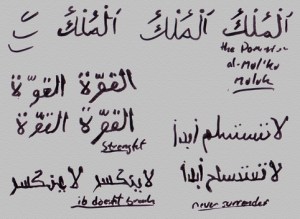 اَلْمُلْكُ اَلْمُلْكُ اَلْمُلْكُ
the Dominion
al-Mul'ku
Muluk
القوّة القوّة
القوّة القوّة
Strenght
لا تستسلم أبداً
لا تستسلم أبداً
never surrender
لا ينكسر لا ينكسر
it doesnt break